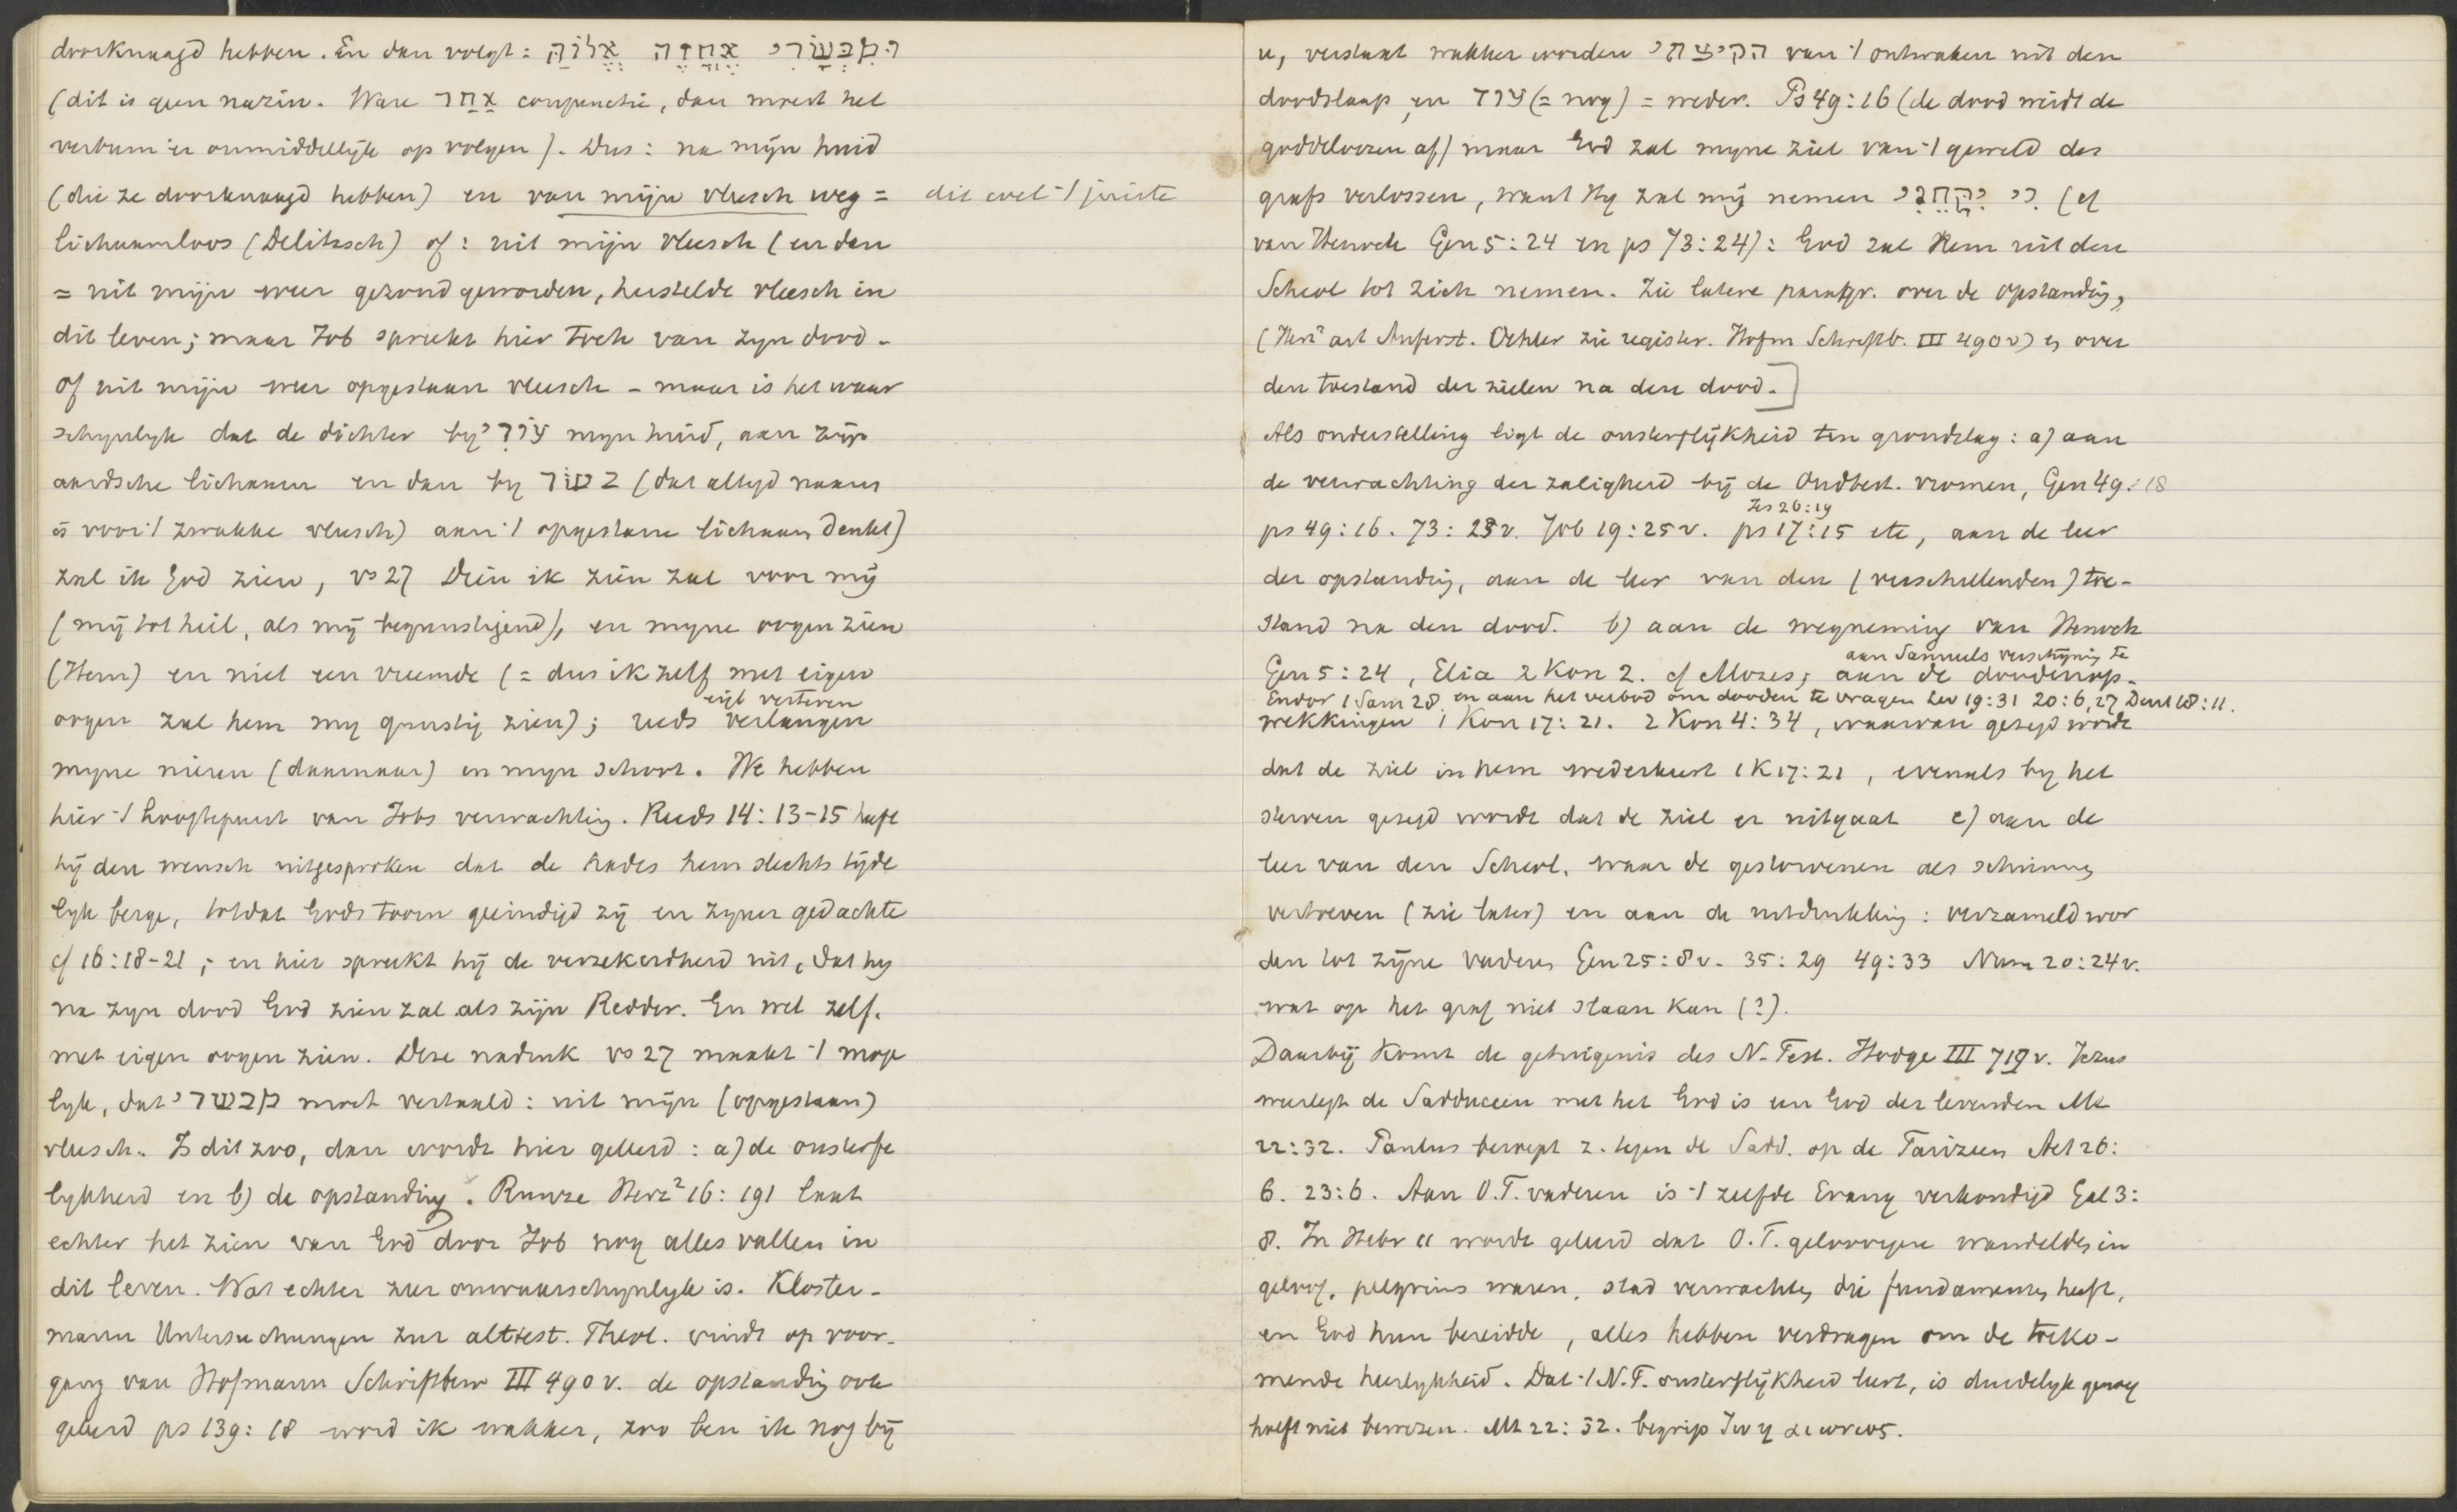 doorknaagd hebben. En dan volgt: וּמִבְּשָׂרִי אֶחֱזֶה אֱלוֹהַּ
(dit is geen nazin. Ware אַחַר conjunctie, dan moest het
verbum er onmiddellijk op volgen). Dus: na mijn huid
(die ze doorknaagd hebben) en van mijn vleesch weg = dit wel 't juiste
lichaamloos (Delitzsch) of: uit mijn vleesch (en dan
= uit mijn weer gezond geworden, herstelde vleesch in
dit leven; maar Job spreekt hier toch van zijn dood -
of uit mijn weer opgestaan vleesch - maar is het waar
schynlyk dat de dichter by עוֹרִי myn huid, aan zijn
aardsche lichaam en dan by בשׂר (dat altyd naam
is voor 't zwakke vleesch) aan 't opgestane lichaam denkt)
zal ik God zien, vs 27 Dien ik zien zal voor mij
(mij tot heil, als mij begunstigend), en myne oogen zien
(Hem) en niet een vreemde (= dus ik zelf met eigen
eigl verteren
oogen zal hem my gunstig zien); reeds verlangen
myne nieren (daarnaar) en myn schoot. We hebben
hier 't hoogtepunt van Jobs verwachting. Reeds 14:13-15 heeft
hij den wensch uitgesproken dat de hades hem slechts tijde
lyk berge, totdat Gods toorn geeindigd zij en zyner gedachte
cf 16:18-21; en hier spreekt hij de verzekerdheid uit, dat hy
na zyn dood God zien zal als zijn Redder. En wel zelf.
met eigen oogen zien. Deze nadruk vs 27 maakt 't moge
lyk, dat מבשׂרי moet vertaald: uit mijn (opgestaan)
vleesch. Is dit zoo, dan wordt hier geleerd: a) de onsterfe
lykheid en b) de opstanding. Runze Herz² 16:191 laat
echter het zien van God door Job nog alles vallen in
dit leven. Wat echter zeer onwaarschynlyk is. Kloster-
mann Untersuchungen zur alttest. Theol. vindt op voor-
gang van Hofmann Schriftbew III 490 v. de opstanding ook
geleerd ps 139:18 word ik wakker, zoo ben ik nog bij
u, verstaat wakker worden הקיצתי van 't ontwaken uit den
doodslaap, en עוד (= nog) = weder. Ps 49:16 (de dood weidt de
goddeloozen af) maar God zal myne ziel van 't geweld des
grafs verlossen, want Hy zal mij nemen כִּי יִקָּחֵנִי (cf
van Henoch Gen 5:24 en ps 73:24): God zal Hem uit den
Scheol tot zich nemen. Zie latere paragr. over de opstanding,
(Herz² art Auferst. Oehler zie register. Hofm Schriftb. III 490 v) en over
den toestand der zielen na den dood.]
Als onderstelling ligt de onsterflijkheid ten grondslag: a) aan
de verwachting der zaligheid bij de Oudtest. vromen, Gen 49:18
Jes 26:19
ps 49:16. 73:23 v. Job 19:25 v. ps 17:15 etc, aan de leer
der opstanding, aan de leer van den (verschillenden) toe-
stand na den dood. b) aan de wegneming van Henoch
aan Samuels verschijning te
Gen 5:24, Elia 2 Kon 2. cf Mozes; aan de doodenop-
Endor 1 Sam 28. en aan het verbod om dooden te vragen Lev 19:31 20:6,27 Deut 18:11.
wekkingen 1 Kon 17:21. 2 Kon 4:34, waarvan gezegd wordt
dat de ziel in hem wederkeert 1 K 17:21, evenals by het
sterven gezegd wordt dat de ziel er uitgaat c) aan de
leer van den Scheol, waar de gestorvenen als schimmen
vertoeven (zie later) en aan de uitdrukking: verzameld wor
den tot zijne vaderen Gen 25:8 v. 35:29 49:33 Num 20:24 v.
wat op het graf niet slaan kan (?).
Daarbij komt de getuigenis des N. Test. Hodge III 719 v. Jezus
weerlegt de Sadduceen met het God is een God der levenden Mt
22:32. Paulus beroept z. tegen de Sadd. op de Farizeen Act 26:
6. 23:6. Aan O.T. vaderen is 't zelfde Evang verkondigd Gal 3:
8. In Hebr 11 wordt geleerd dat O.T. geloovigen wandelden in
geloof, pelgrims waren, stad verwachten die fundamenten heeft,
en God hun bereidde, alles hebben verdragen om de toeko-
mende heerlykheid. Dat 't N.T. onsterflijkheid leert, is duidelyk genoeg
hoeft niet bewezen. Mt 22:32. begrip ζωη αιωνιος.